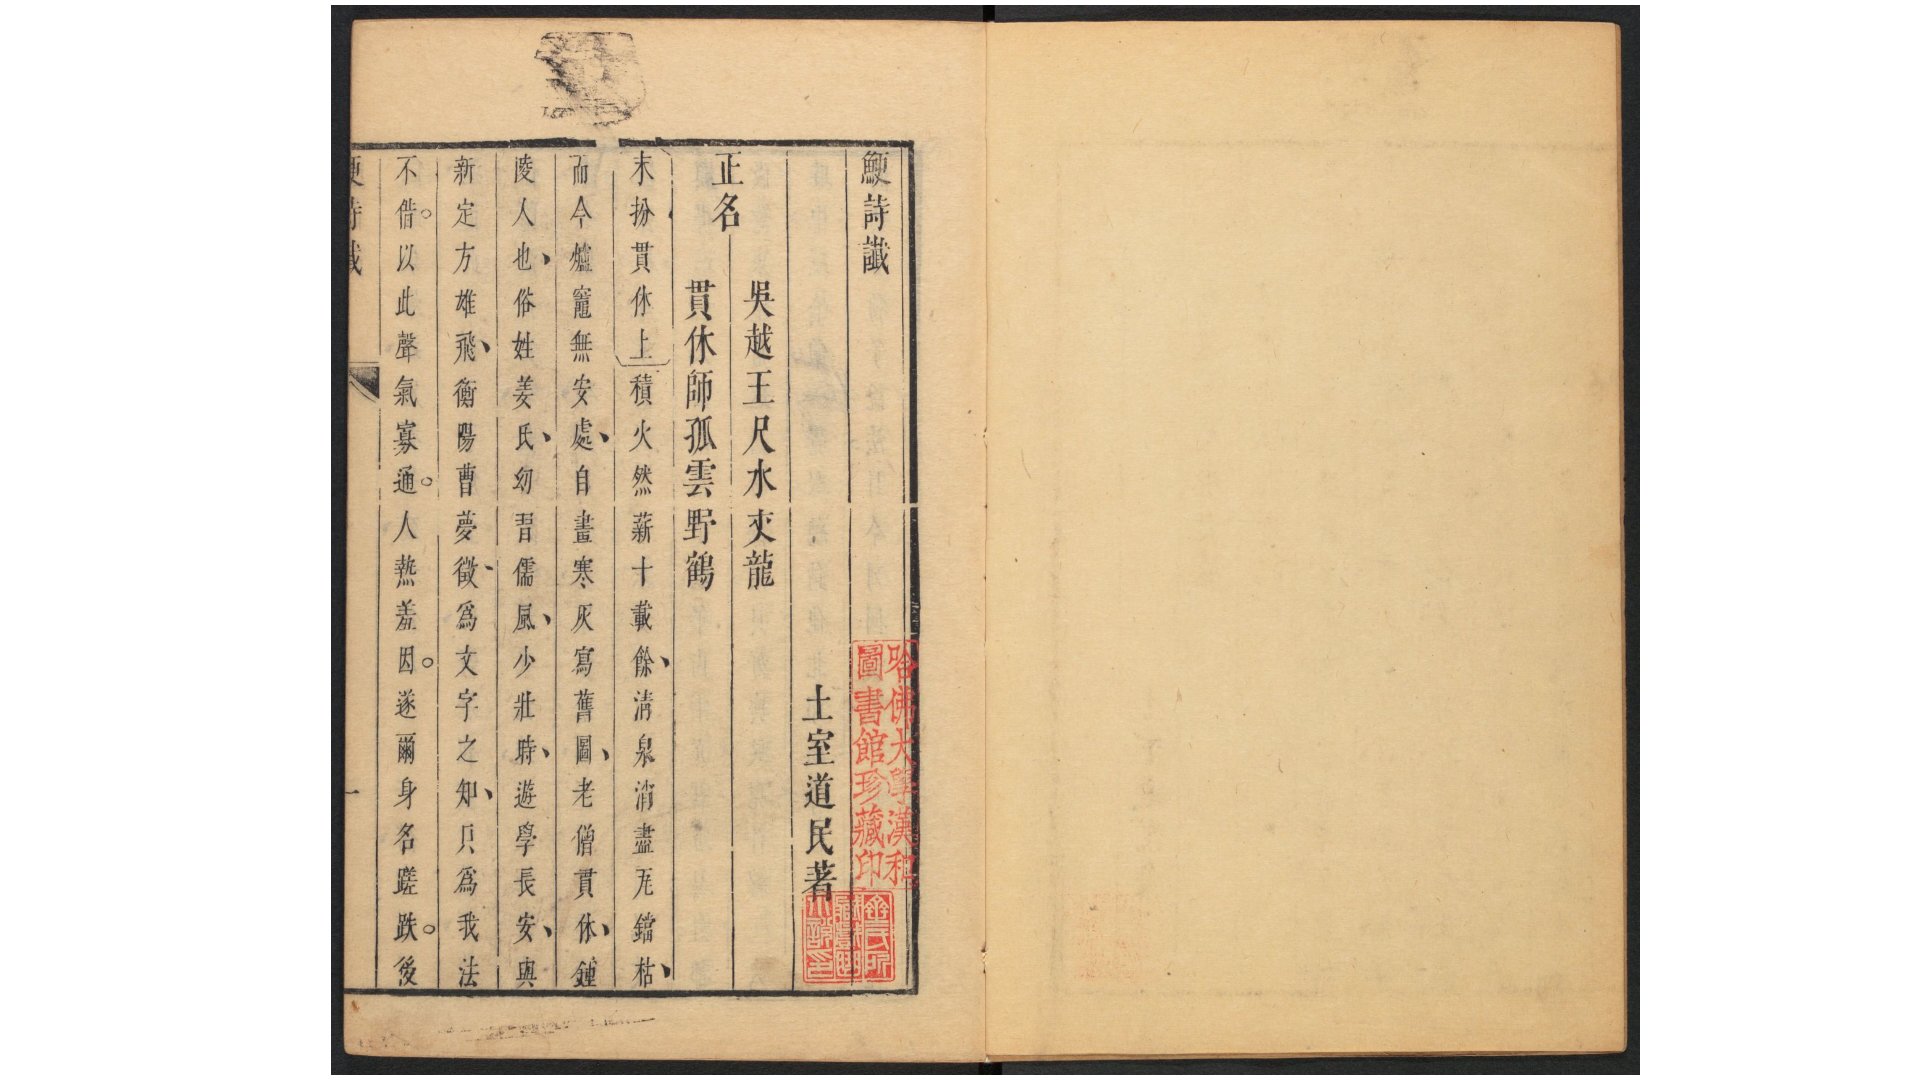 鯁詩讖
土室道民著
正名
吳越王尺水夾龍
貫休師孤雲野鶴
末扮貫休上積火然薪十載餘、清泉消盡瓦鐺枯、
而今爐竈無安處、自畫寒灰寫舊圖、老僧貫休、鍾
陵人也、俗姓姜氏、幼習儒風、少壯時、遊學長安、與
新定方雄飛、衡陽曹夢徵、爲文字之知、只爲我法
不借。以此聲氣寡通。人熱羞因。遂爾身名蹉跌。後
鯁詩讖
一
哈佛大學漢和
圖書館珍藏印